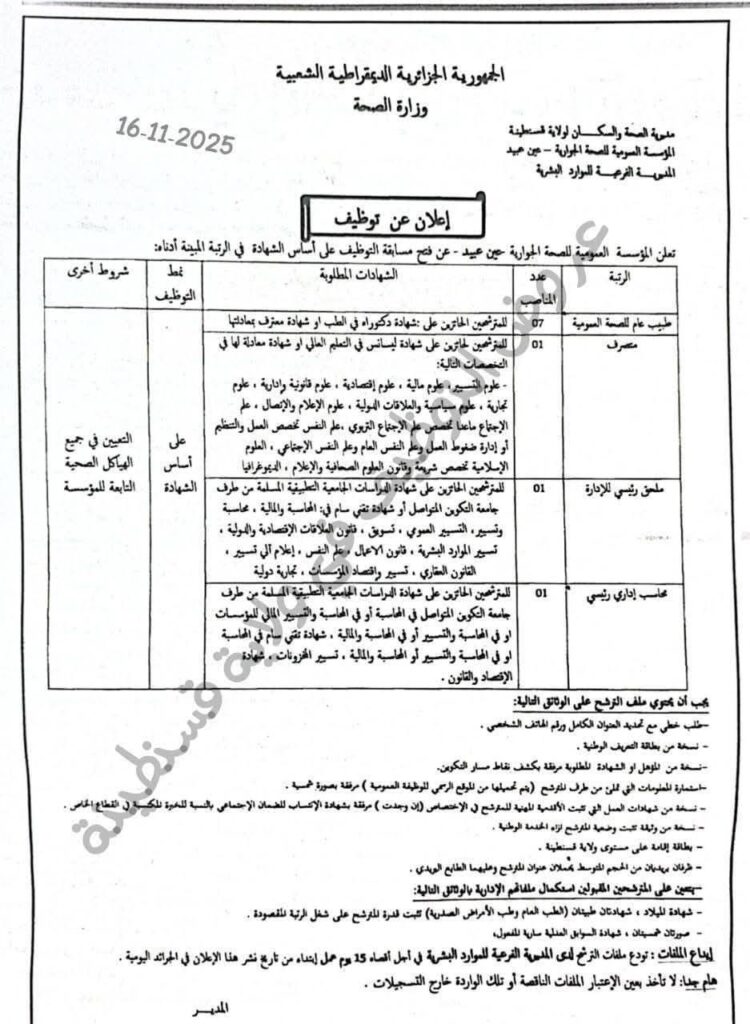 الجمهورية الجزائرية الديمقراطية الشعبية
وزارة الصحة
16-11-2025
مديرية الصحة والسكان لولاية قسنطينة
المؤسسة العمومية للصحة الجوارية – عين عبيد
المديرية الفرعية للموارد البشرية
إعلان عن توظيف
تعلن المؤسسة العمومية للصحة الجوارية -عين عبيد - عن فتح مسابقة التوظيف على أساس الشهادة في الرتبة المبينة أدناه:
الرتبة
عدد المناصب
الشهادات المطلوبة
نمط التوظيف
شروط أخرى
طبيب عام للصحة العمومية
07
للمترشحين الحائزين على :شهادة دكتوراه في الطب او شهادة معترف بمعادلتها
متصرف
01
للمترشحين لحائزين على شهادة ليسانس في التعليم العالي او شهادة معادلة لها في
التخصصات التالية:
- علوم التسيير ، علوم مالية ، علوم إقتصادية ، علوم قانونية وإدارية ، علوم
تجارية ، علوم سياسية والعلاقات الدولية ، علوم الإعلام والإتصال ، علم
الإجتماع ماعدا تخصص علم الإجتماع التربوي ،علم النفس تخصص العمل والتنظيم
أو إدارة ضغوط العمل وعلم النفس العام وعلم النفس الإجتماعي ، العلوم
الإسلامية تخصص شريعة وقانون العلوم الصحافية والإعلام ، الديموغرافيا
ملحق رئيسي للإدارة
01
للمترشحين الحائزين على شهادة الدراسات الجامعية التطبيقية المسلمة من طرف
جامعة التكوين المتواصل أو شهادة تقني سام في: المحاسبة والمالية ، محاسبة
وتسيير، التسيير العمومي ، تسويق ، قانون العلاقات الإقتصادية والدولية ،
تسيير الموارد البشرية ، قانون الاعمال ، علم النفس ، إعلام آلي تسيير ،
القانون العقاري ، تسيير وإقتصاد المؤسسات ، تجارية دولية
محاسب إداري رئيسي
01
للمترشحين الحائزين على شهادة الدراسات الجامعية التطبيقية المسلمة من طرف
جامعة التكوين المتواصل في المحاسبة أو في المحاسبة والتسيير المالي للمؤسسات
او في المحاسبة والتسيير أو في المحاسبة والمالية ، شهادة تقني سام في المحاسبة
او في المحاسبة والتسيير أو المحاسبة والمالية ، تسيير المخزونات ، شهادة
الإقتصاد والقانون .
على أساس الشهادة
التعيين في جميع
الهياكل الصحية
التابعة للمؤسسة
يجب أن يحتوي ملف الترشح على الوثائق التالية:
-طلب خطي مع تحديد العنوان الكامل ورقم الهاتف الشخصي .
- نسخة من بطاقة التعريف الوطنية .
-نسخة من المؤهل او الشهادة المطلوبة مرفقة بكشف نقاط مسار التكوين.
-استمارة المعلومات التي تملئ من طرف المترشح (يتم تحميلها من الموقع الرسمي للوظيفة العمومية ) مرفقة بصورة شمسية .
- نسخة من شهادات العمل التي تثبت الأقدمية المهنية للمترشح في الإختصاص (إن وجدت ) مرفقة بشهادة الإنتساب للضمان الإجتماعي بالنسبة للخبرة المكتسبة في القطاع الخاص .
- نسخة من وثيقة تثبت وضعية المترشح ازاء الخدمة الوطنية .
- بطاقة إقامة على مستوى ولاية قسنطينة .
- ظرفان بريديان من الحجم المتوسط يحملان عنوان المترشح وعليهما الطابع البريدي .
-يتعين على المترشحين المقبولين استكمال ملفاتهم الإدارية بالوثائق التالية:
- شهادة الميلاد ، شهادتان طبيتان (الطب العام وطب الأمراض الصدرية) تثبت قدرة المترشح على شغل الرتبة المقصودة .
- صورتان شمسيتان ، شهادة السوابق العدلية سارية المفعول،
إيداع الملفات : تودع ملفات الترشح لدى المديرية الفرعية للموارد البشرية في أجل أقصاه 15 يوم عمل إبتداء من تاريخ نشر هذا الإعلان في الجرائد اليومية .
هام جدا: لا تأخذ بعين الإعتبار الملفات الناقصة أو تلك الواردة خارج التسجيلات .
المدير
عروض التوظيف في ولاية قسنطينة